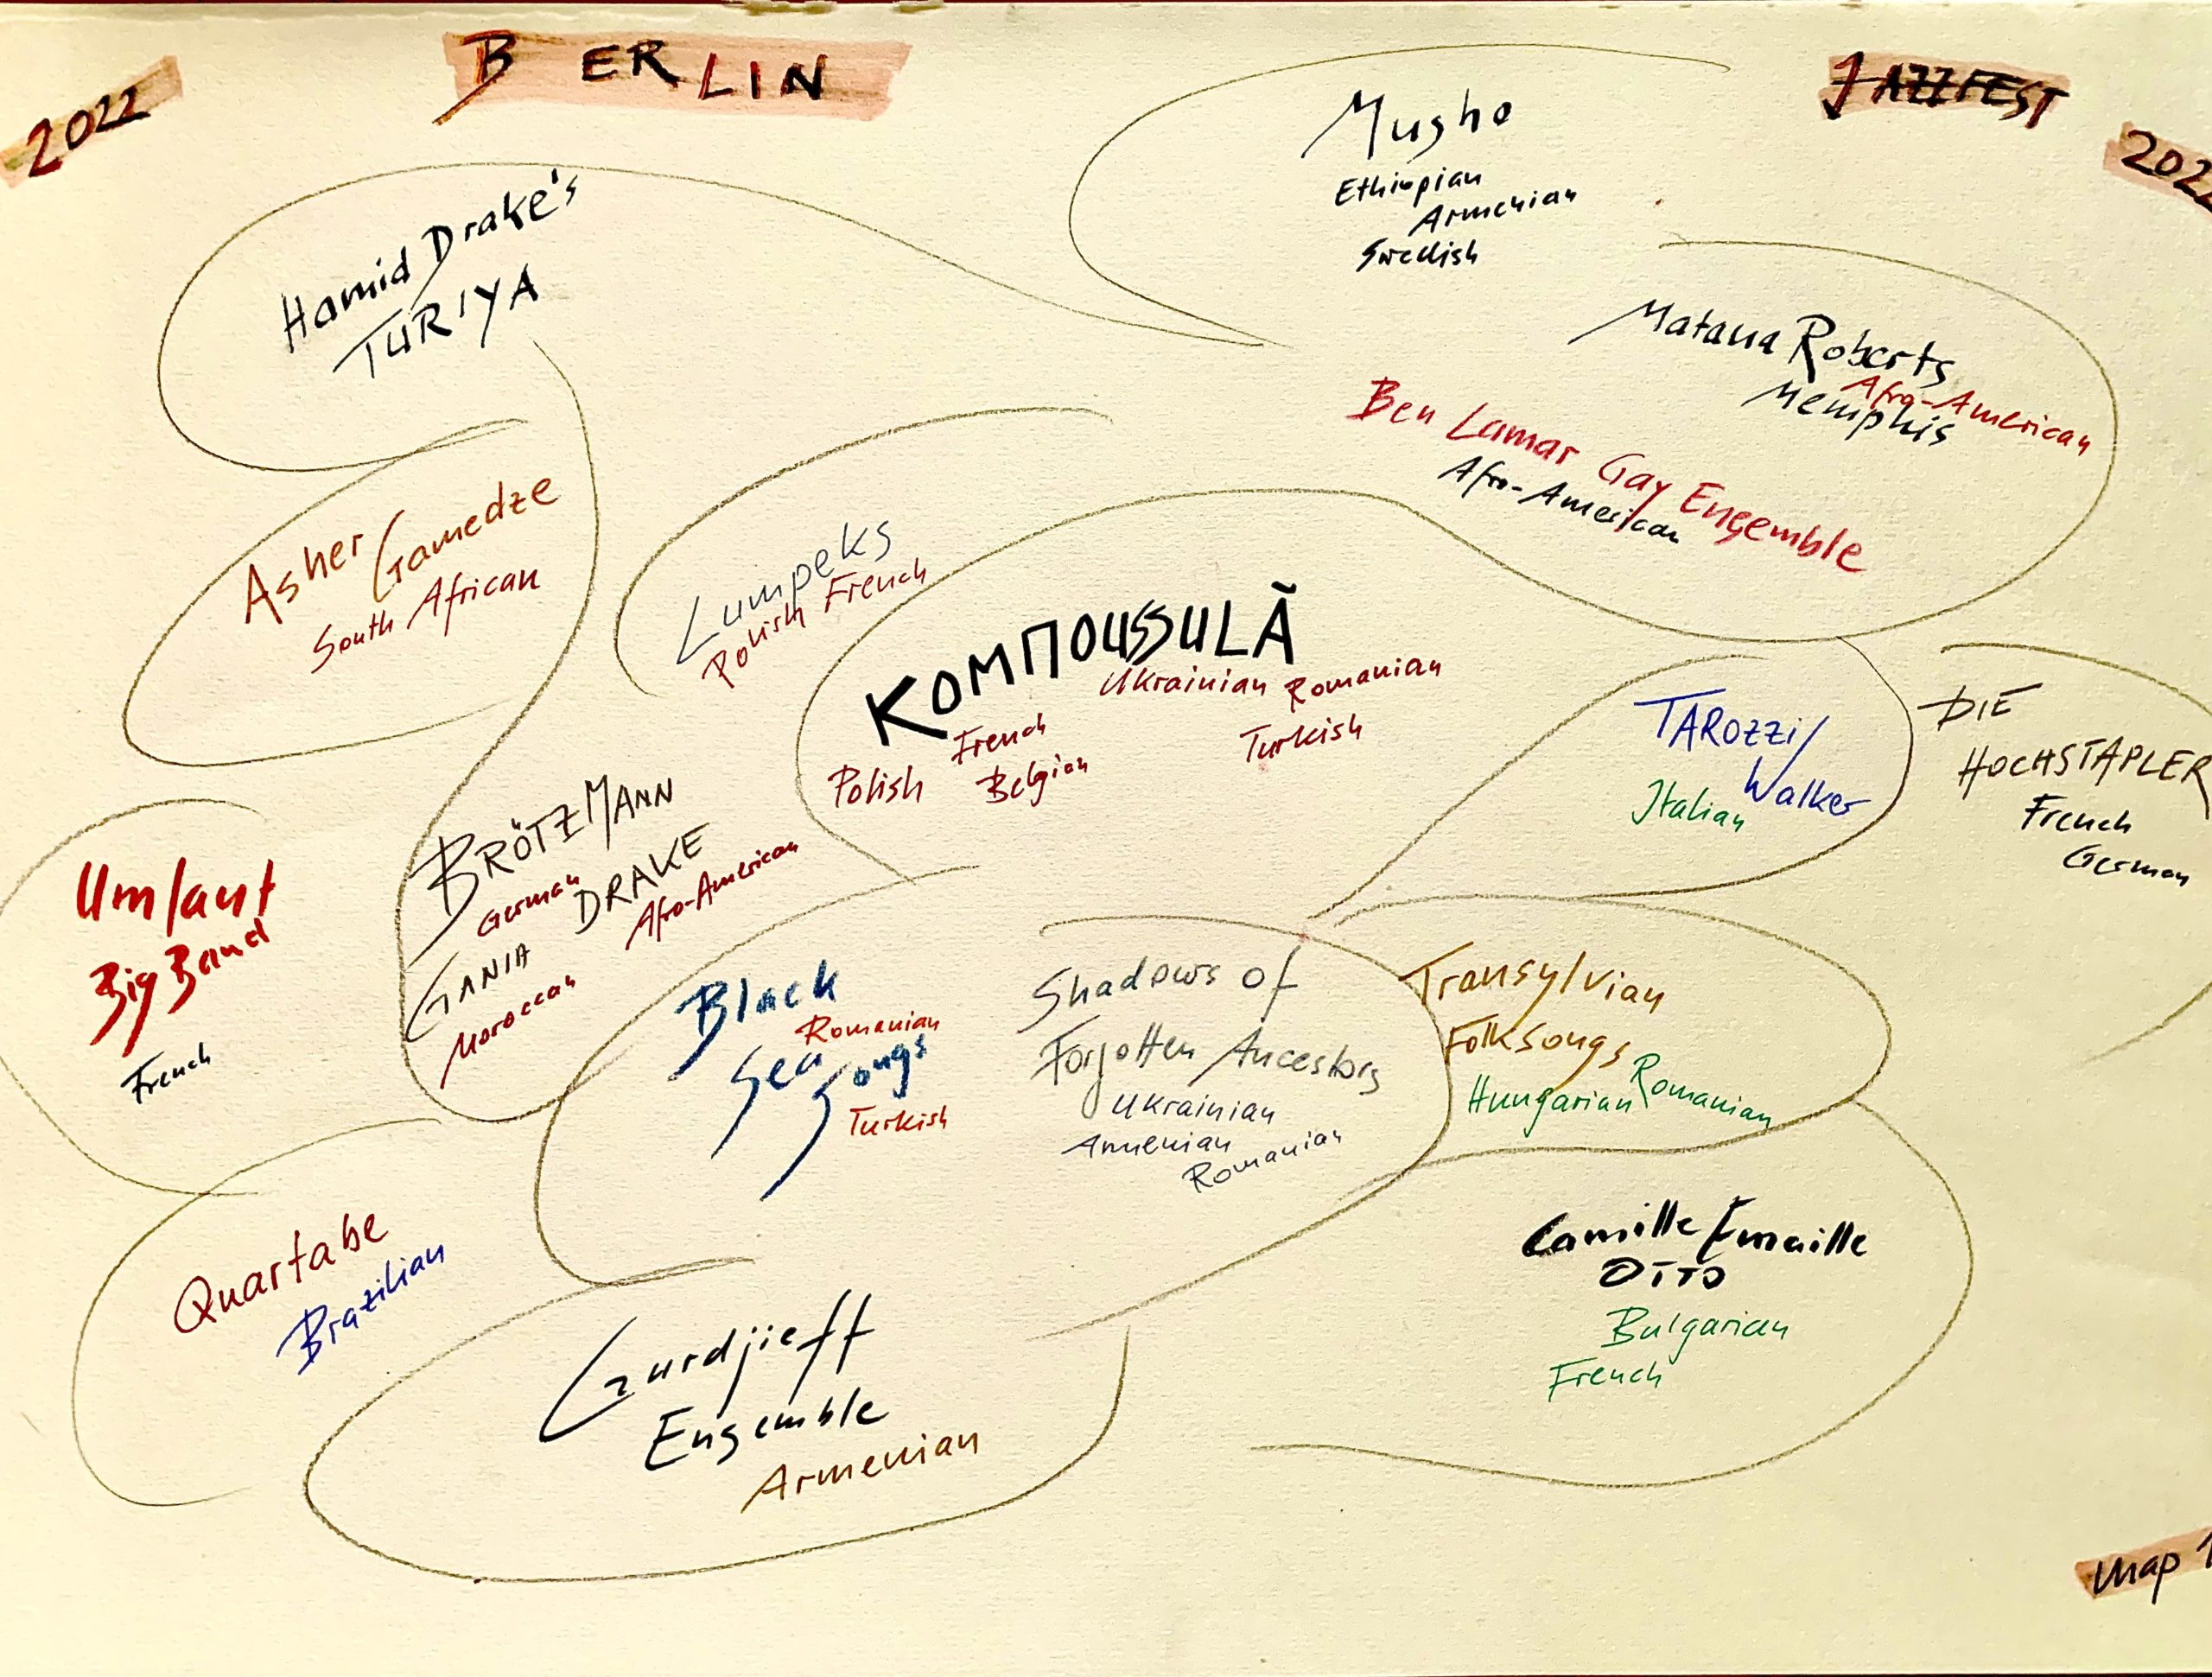 2022
BERLIN
JAZZFEST
202
Musho
Ethiopian
Armenian
Swedish
Hamid Drake's
TURIYA
Matana Roberts
Afro-American
Memphis
Ben Lamar Gay Ensemble
Afro-American
Asher Gamedze
South African
Lumpeks
Polish French
KOMПOUSSULÃ
Ukrainian Romanian
French
Turkish
Polish
Belgian
TAROZZI/
Walker
Italian
DIE
HOCHSTAPLER
French
German
BRÖTZMANN
German
DRAKE
Afro-American
GANIA
Moroccan
Umlaut
Big Band
French
Black
Romanian
Sea
Songs
Turkish
Shadows of
Forgotten Ancestors
Ukrainian
Armenian
Romanian
Transylvian
Folksongs
Hungarian Romanian
Quartabe
Brazilian
Camille Emaille
OTTO
Bulgarian
French
Gurdjieff
Ensemble
Armenian
Map 1